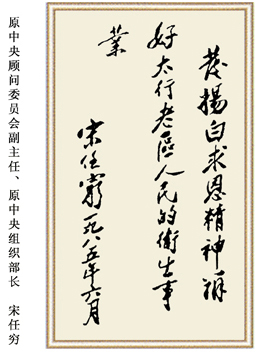 發揚白求恩精神辦
好太行老區人民的衛生事
業
宋任窮一九八五年六月
原中央顾问委员会副主任、原中央组织部长 宋任穷